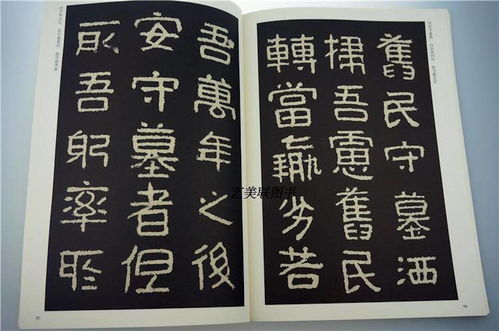 舊民守墓洒
掃吾慮舊民
轉當羸劣若
吾萬年之後
安守墓者但
取吾躬率所
艺美联图书